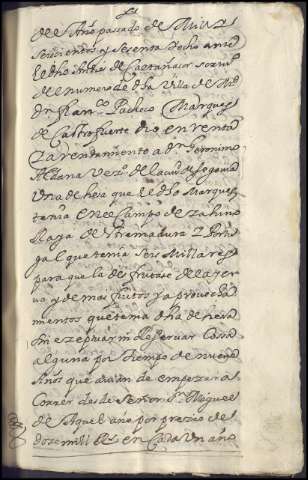 de el Año pasado de Mill y
seiscientos y sesenta y ocho ante
el dho Andres de Caltañazor scriv
de numero de dha Villa de Md
Dn Franco Pacheco Marques
de Castrofuerte dio en renta
y arrendamiento a dn Geronimo
Aldana Vezo de la ciud de segovia
una dehesa que el dho Marques
tenia en el campo de zahino
Raya de estremadura y Portu
gal que tenia seis Millares
para que la desfrutase de la yer
va y demas frutos y aprovecha
mientos que tenia dha dehesa
sin exzeptuar ni Reservar cossa
alguna por tiempo de nueve
Años que avian de empezar a
correr desde señor Sn Miguel
de Aquel año por prezio de
doze mill Rs en cada un año